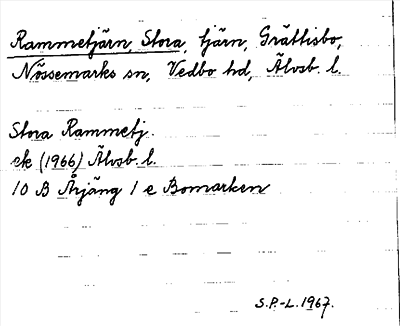 Rammetjärn, Stora, tjärn, Gråttisbo,
Nössemarks sn, Vedbo hd, Älvsb. l.
Stora Rammetj.
ek (1966) Älvsb. l.
10 B Årjäng 1 e Bomarken
S.P.-L. 1967.